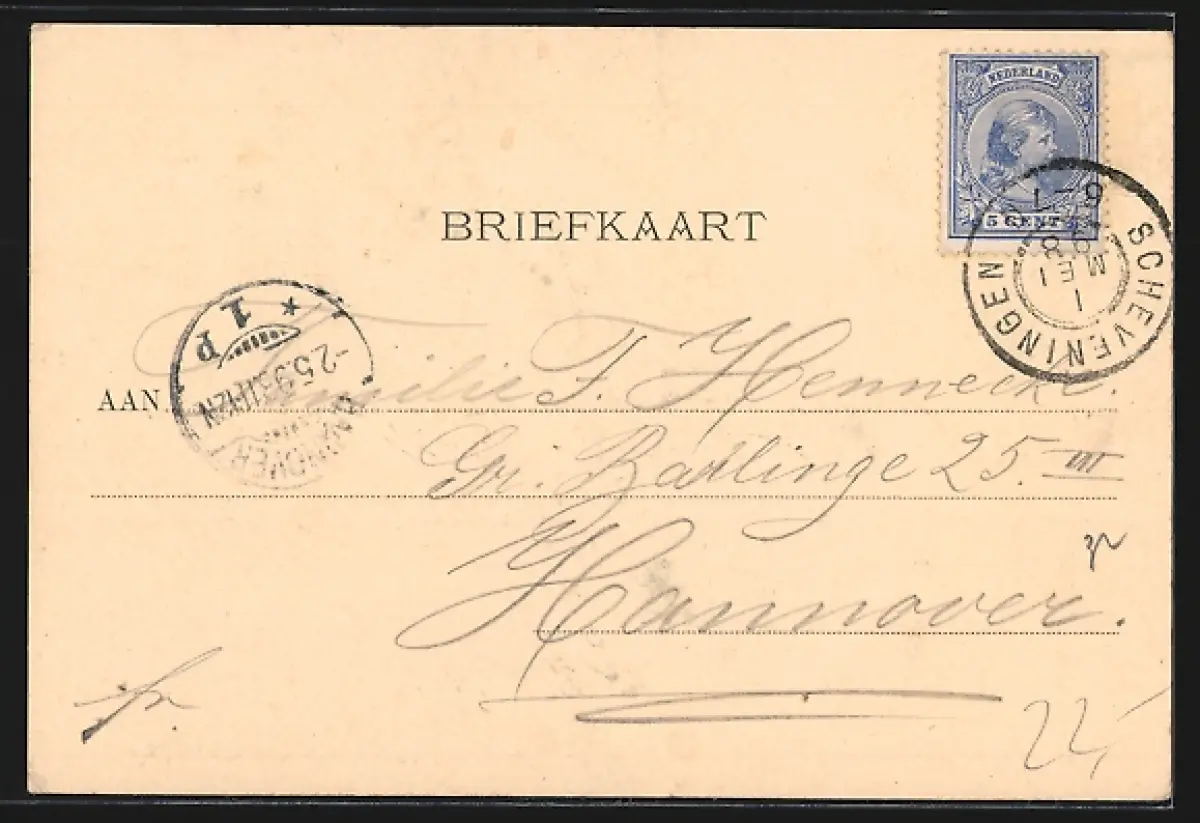 NEDERLAND
5 CENT
SCHEVENINGEN
6-7
1
MEI
98
BRIEFKAART
1 P
HANNOVER
2.5.98. 11-12N
AAN Familie F. Hennecke.
Gr. Barlinge 25. III
Hannover.
fr.
22,